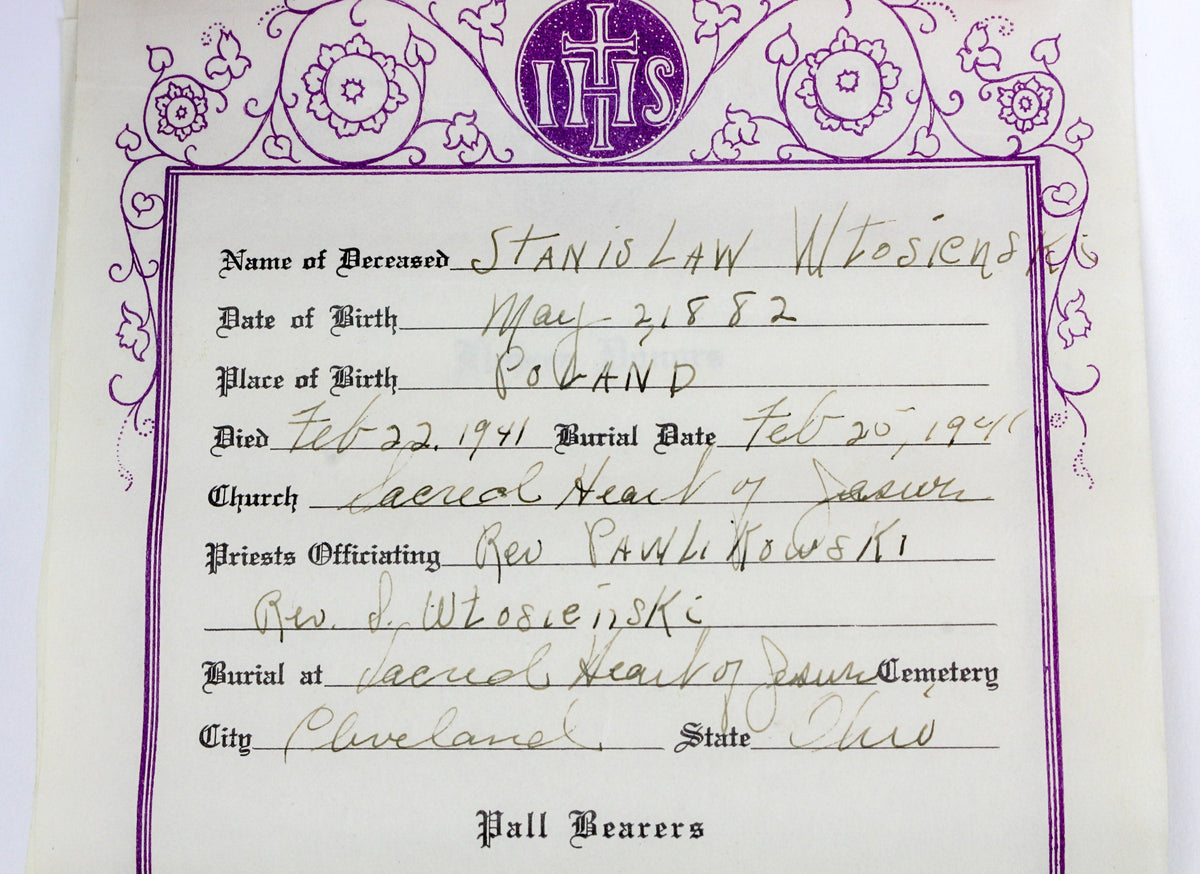 IHS
Name of Deceased STANISLAW Włosienski
Date of Birth May 2, 1882
Place of Birth POLAND
Died Feb 22, 1941 Burial Date Feb 25, 1941
Church Sacred Heart of Jesus
Priests Officiating Rev PAWLIKOWSKI
Rev. S. Włosieński
Burial at Sacred Heart of Jesus Cemetery
City Cleveland State Ohio
Pall Bearers